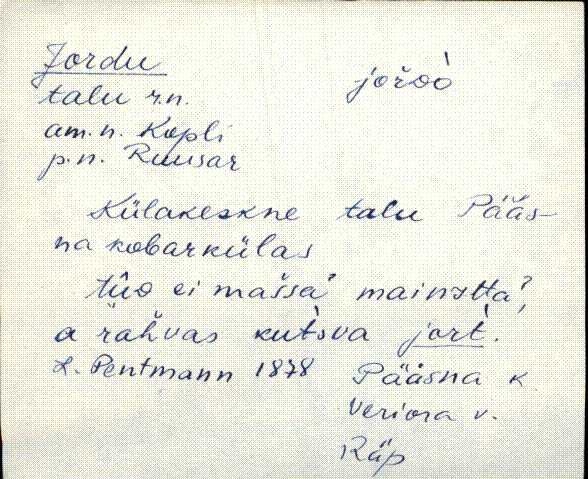 Jordu joŕoò
talu r.n.
am.n. Kopli
p.n. Ruusar
Külakeskne talu Pääs-
na kobarkülas
tûo ei massa' mainitta',
a rahvas kutsva jort̀.
L. Pentmann 1878 Pääsna k
Veriora v.
Räp